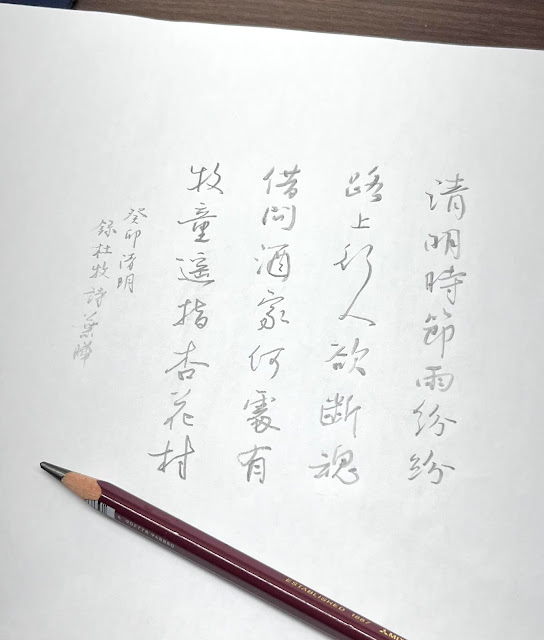 清明時節雨纷纷
路上行人欲断魂
借问酒家何處有
牧童遥指杏花村
癸卯清明
録杜牧詩
ESTABLISHED 1887
MI